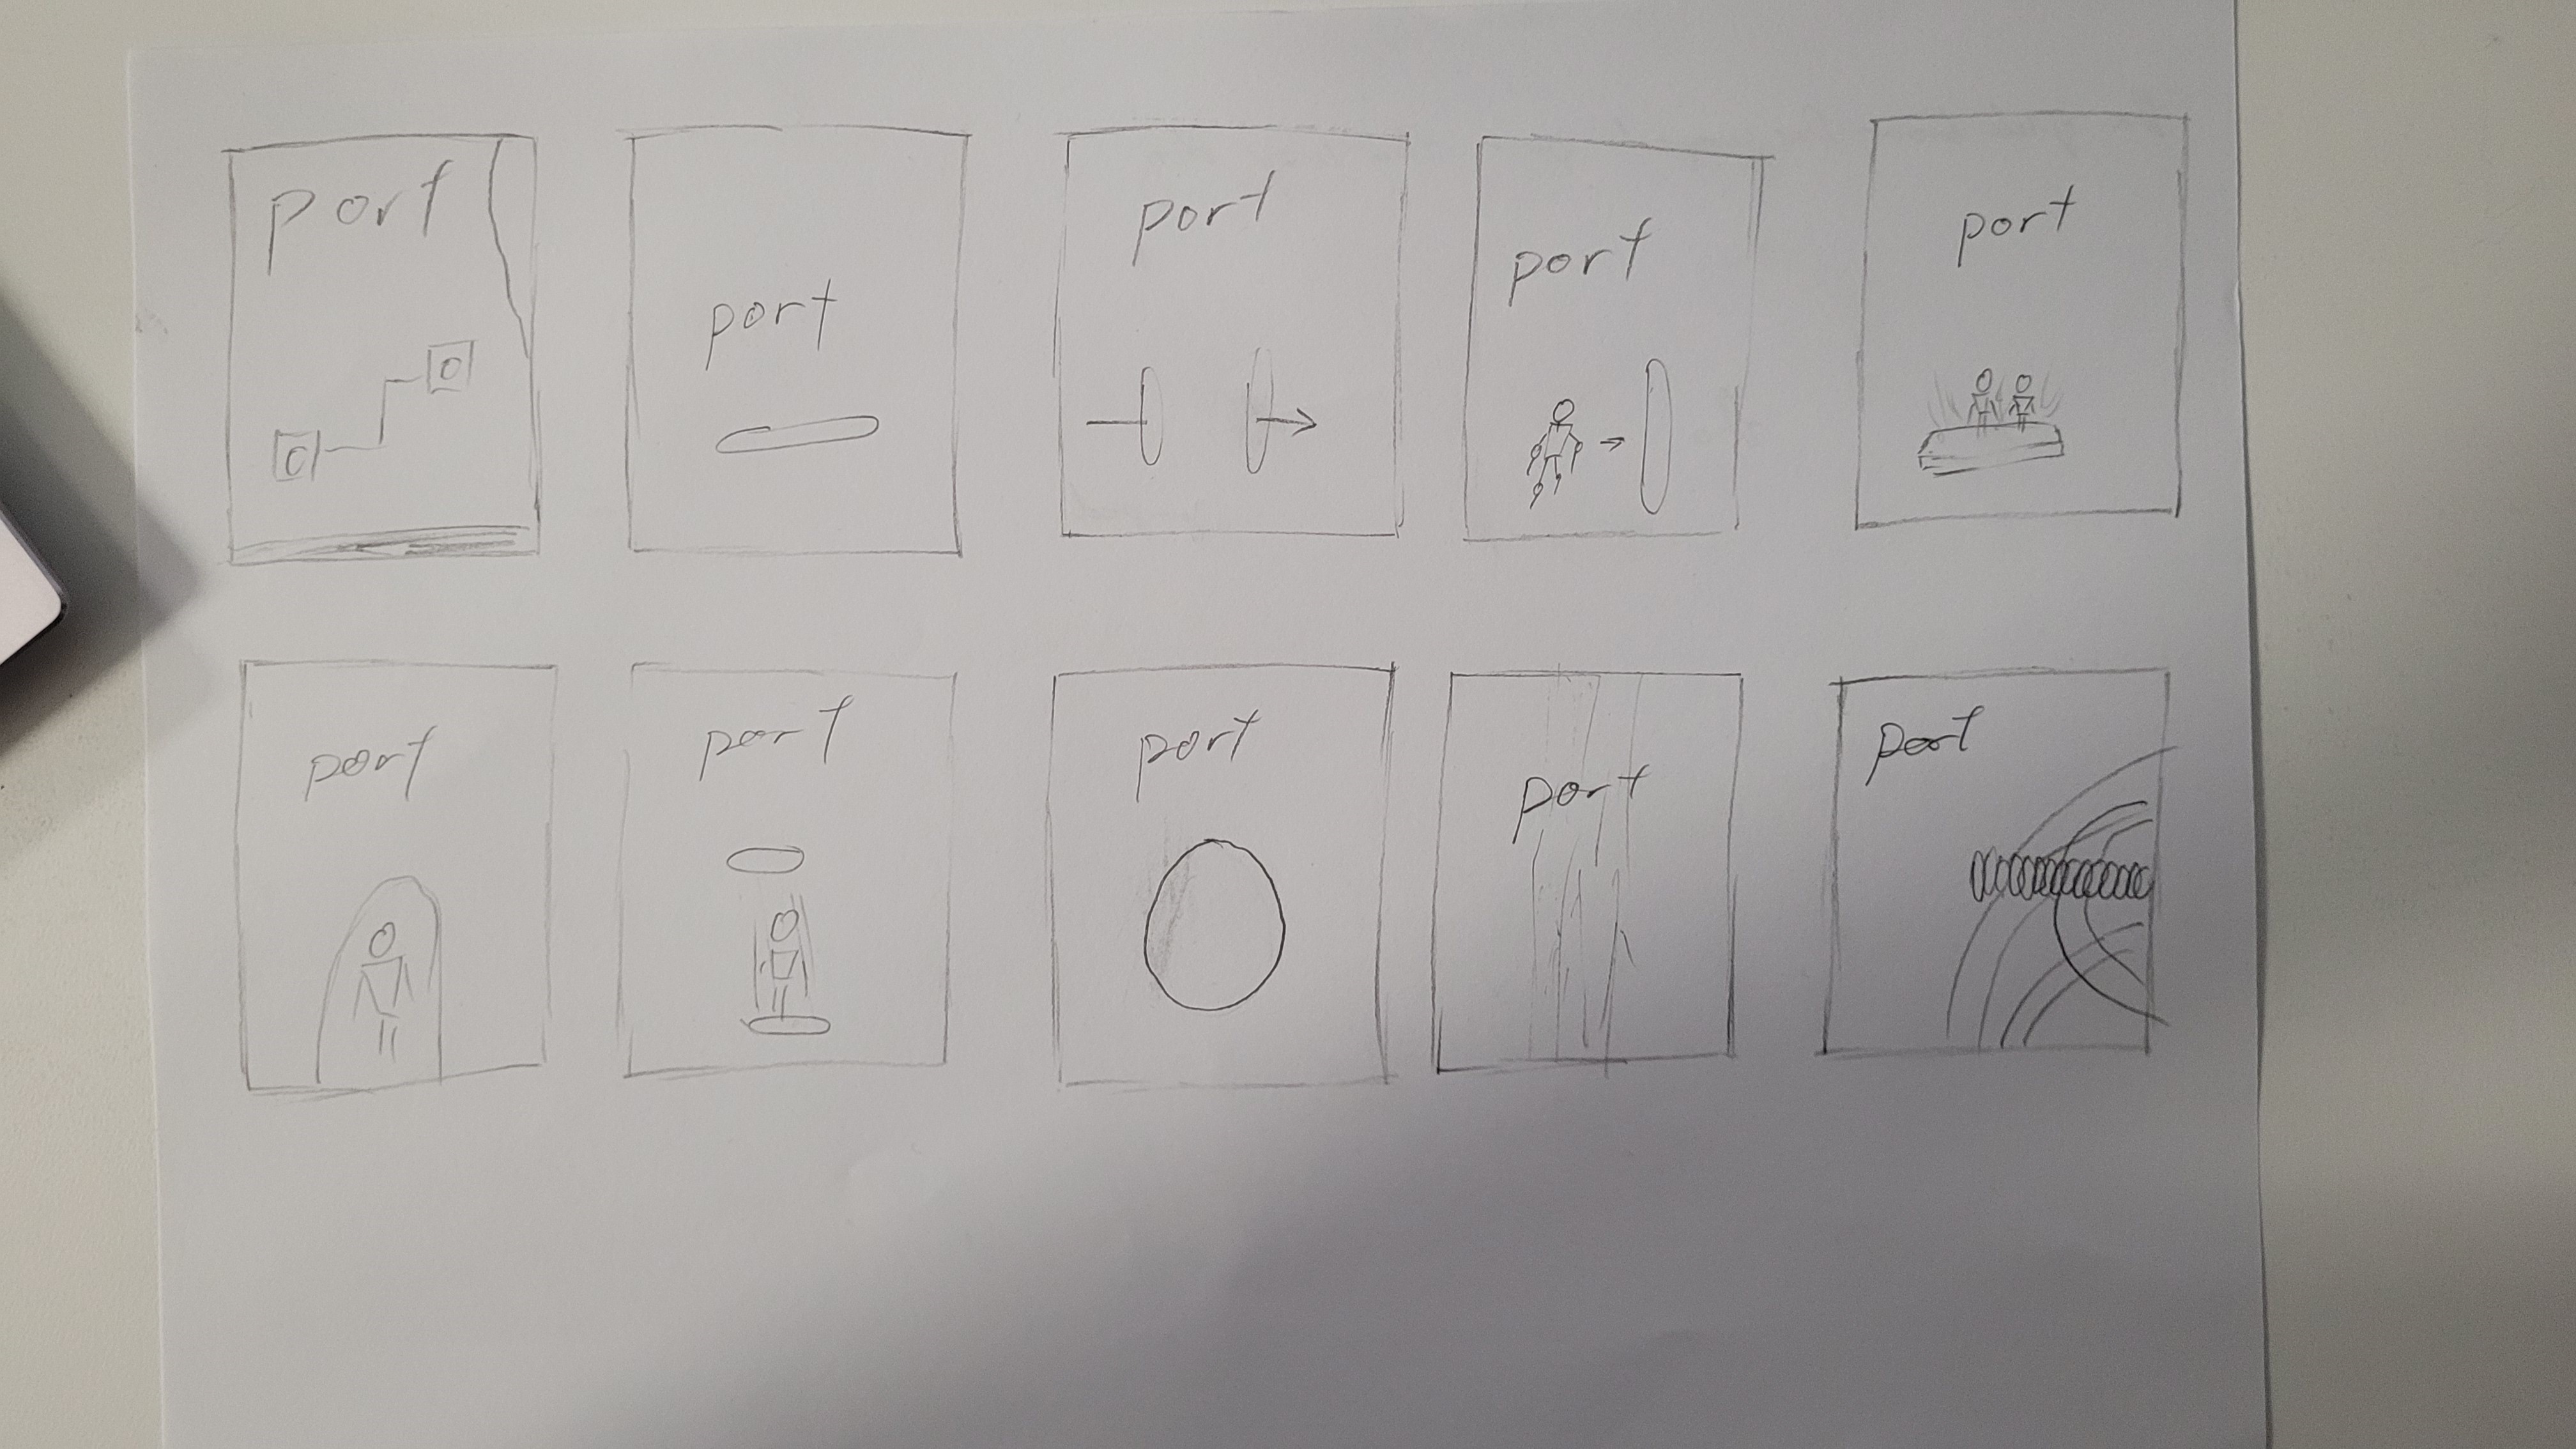 port
port
port
port
port
port
port
port
port
port